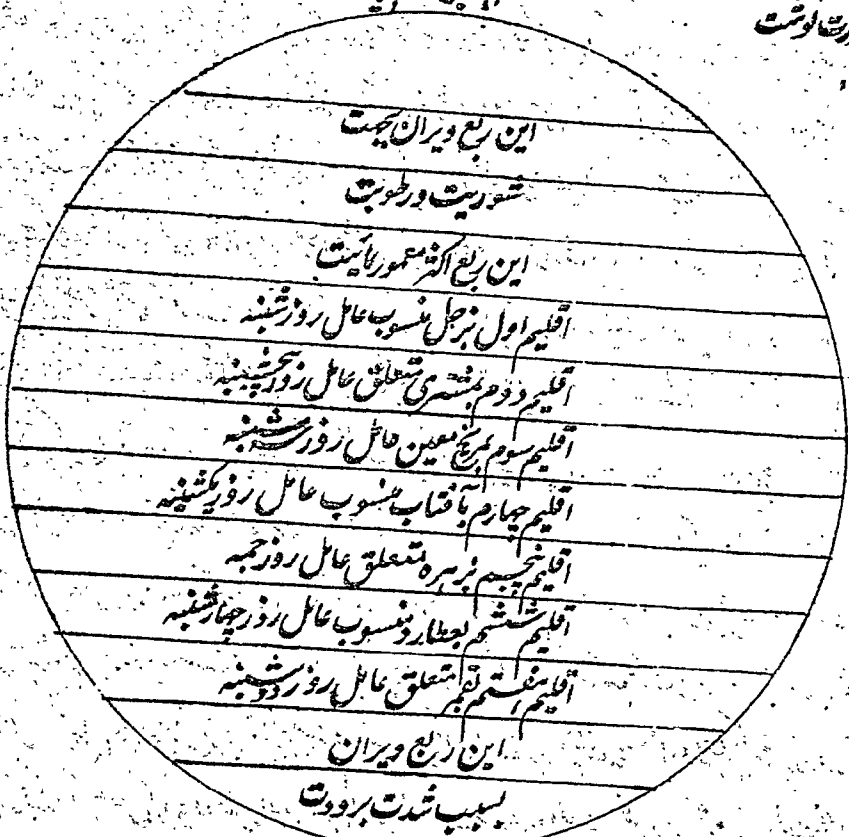 این ربع ویران بجهت
شوریت و رطوبت
این ربع اکثر معمور
اقلیم اول بزحل منسوب عامل روز شنبه
اقلیم دوم بمشتری متعلق عامل روز پنجشنبه
اقلیم سوم بمریخ معین عامل روز سه شنبه
اقلیم چهارم بآفتاب منسوب عامل روز یکشنبه
اقلیم پنجم بزهره متعلق عامل روز جمعه
اقلیم ششم بعطارد منسوب عامل روز چهارشنبه
اقلیم هفتم بقمر متعلق عامل روز دوشنبه
این ربع ویران
بسبب شدت برودت